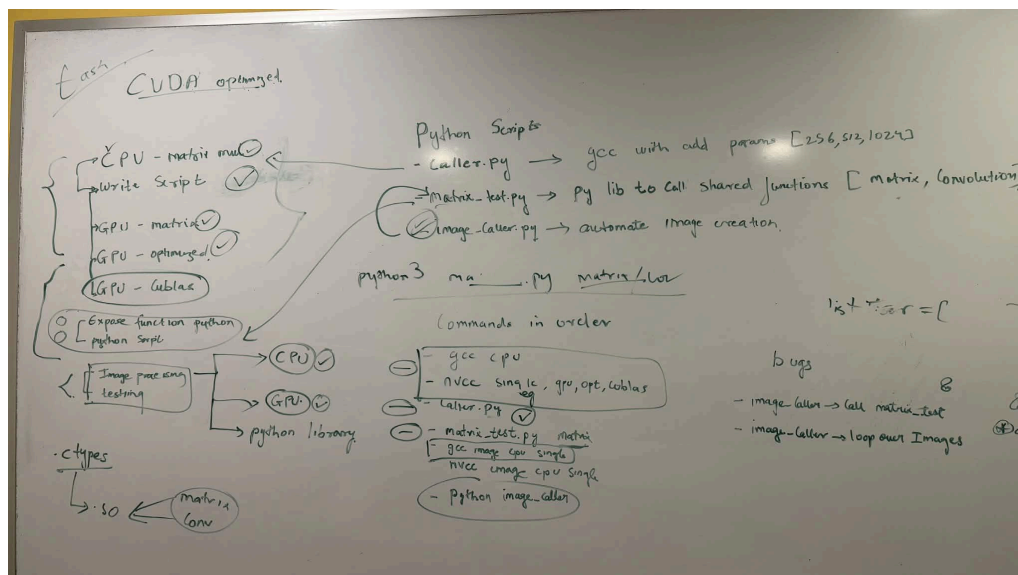 task
CUDA optimized.
CPU - matrix mul
write script
GPU - matrix
GPU - optimized
GPU - Cublas
Expose function python
python script
Image processing
testing
CPU
GPU
python library
.ctypes
.so
matrix
Conv
Python Scripts
- Caller.py → gcc with add params [256,512,1024]
matrix_test.py → py lib to call shared functions [matrix, Convolution]
image_caller.py → automate image creation.
python3 ma____.py matrix/
Commands in order
- gcc cpu
- nvcc single, gpu, opt, coblas
- Caller.py
- matrix_test.py matrix
- gcc image cpu single
nvcc image cpu single
- Python image_caller
= [
bugs
- image_caller → Call matrix_test
- image_caller → loop over Images